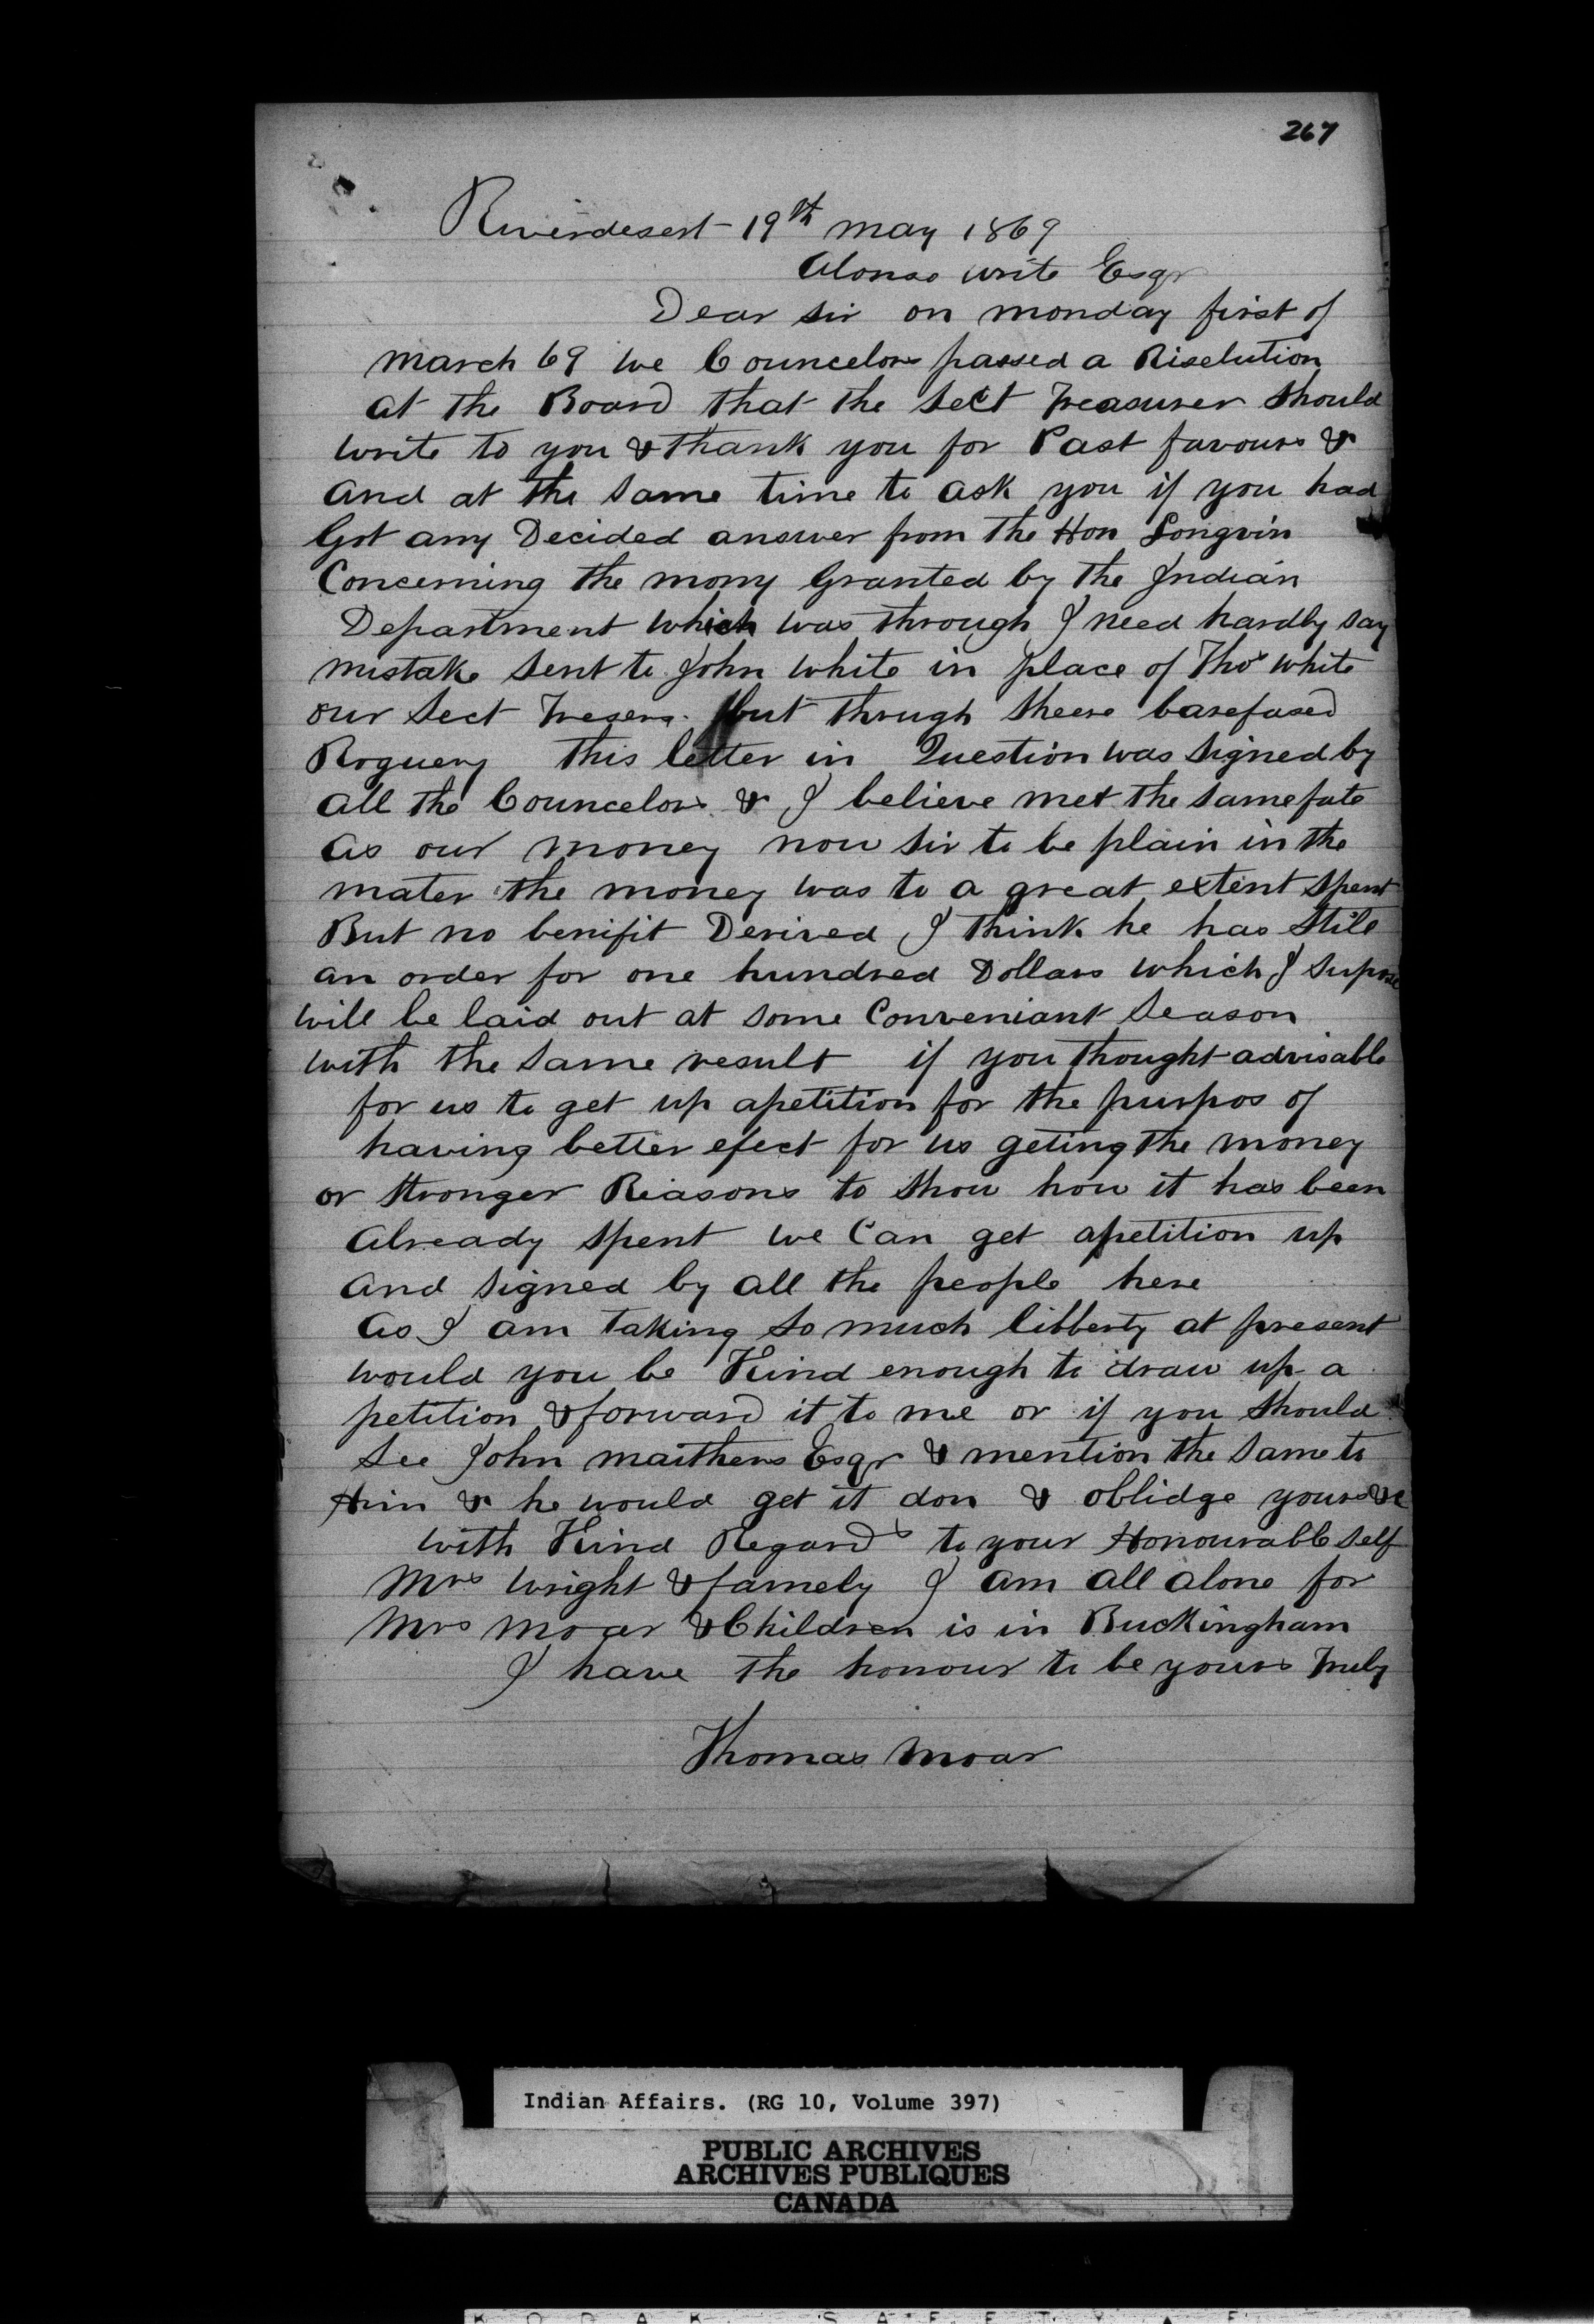 267
Riverdesert 19th may 1869
Alonso write Esqr
Dear Sir on monday first of
march 69 we Councelors passed a Riselution
at the Board that the Sect Treasurer should
write to you & thank you for Past favours &
and at the same time to ask you if you had
Got any Decided answer from the Hon Longvin
Concerning the mony Granted by the Indian
Department which was through I need hardly say
mistake sent to John White in place of Thos White
our Sect Tresera. but through sheere barefased
Roguery this letter in Question was signed by
all the Councelors & I believe met the same fate
as our money now sir to be plain in the
mater the money was to a great extent spent
But no benifit Derived I think he has still
an order for one hundred Dollars which I supose
will be laid out at some Conveniant Season
with the same result if you thought advisable
for us to get up apetition for the purpos of
having better efect for us geting the money
or stronger Reasons to show how it has been
already spent we Can get apetition up
and signed by all the people here
as I am taking so much libberty at present
would you be Kind enough to draw up a
petition & forward it to me or if you should
see John maithers Esqr & mention the same to
Him & he would get it don & oblidge yours &c
with Kind Regards to your Honourable self
Mrs Wright & famely I am all alone for
Mrs Moar & Children is in Buckingham
I have the honour to be yours Truly
Thomas Moar
Indian Affairs. (RG 10, Volume 397)
PUBLIC ARCHIVES
ARCHIVES PUBLIQUES
CANADA